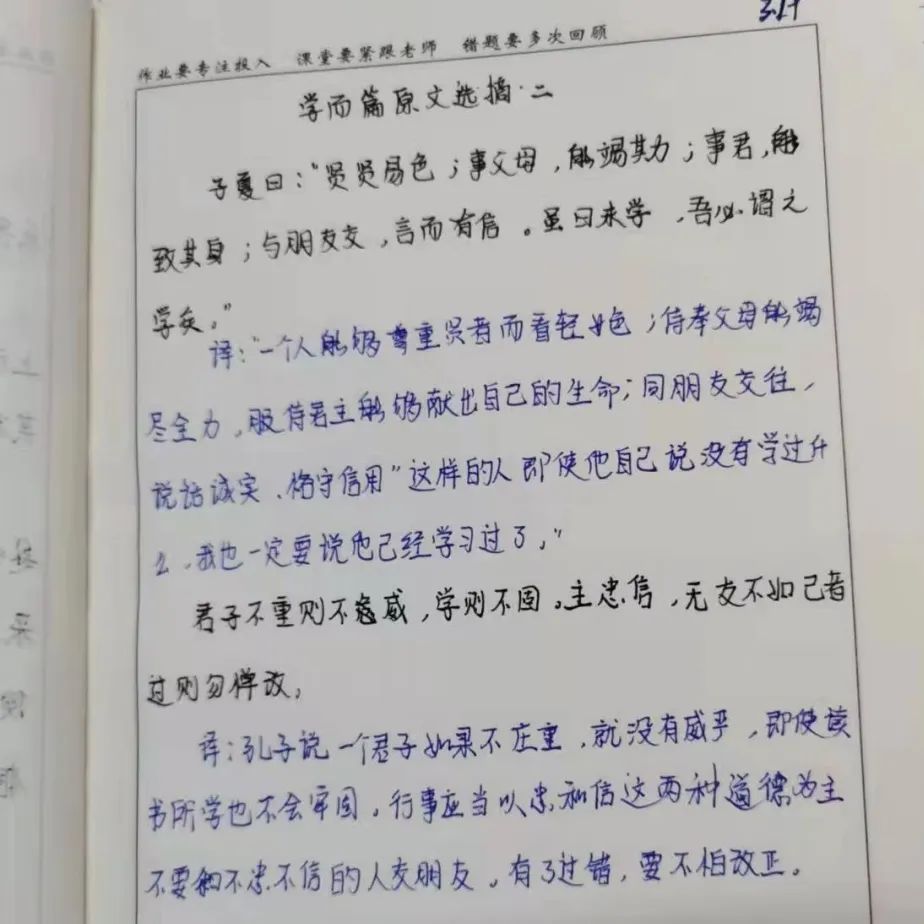 作业要专注投入 课堂要紧跟老师 错题要多次回顾
学而篇原文选摘·二
子夏曰：“贤贤易色；事父母，能竭其力；事君，能
致其身；与朋友交，言而有信。虽曰未学，吾必谓之
学矣。”
译：“一个人能够尊重贤者而看轻女色；侍奉父母能竭
尽全力，服侍君主能够献出自己的生命；同朋友交往，
说话诚实、恪守信用”这样的人即使他自己说没有学过什
么，我也一定要说他已经学习过了，”
君子不重则不威，学则不固。主忠信，无友不如己者
过则勿惮改，
译：孔子说一个君子如果不庄重，就没有威严，即使读
书所学也不会牢固。行事应当以忠和信这两种道德为主
不要和不忠不信的人交朋友。有了过错，要不怕改正。